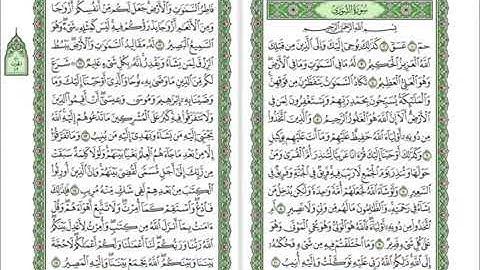 سُورَةُ الشُّورَىٰ
بِسْمِ اللَّهِ الرَّحْمَٰنِ الرَّحِيمِ
حمٓ ۝ عٓسٓقٓ ۝ كَذَٰلِكَ يُوحِىٓ إِلَيْكَ وَإِلَى ٱلَّذِينَ مِن قَبْلِكَ
ٱللَّهُ ٱلْعَزِيزُ ٱلْحَكِيمُ ۝ لَهُۥ مَا فِى ٱلسَّمَٰوَٰتِ وَمَا فِى ٱلْأَرْضِ
وَهُوَ ٱلْعَلِىُّ ٱلْعَظِيمُ ۝ تَكَادُ ٱلسَّمَٰوَٰتُ يَتَفَطَّرْنَ مِن فَوْقِهِنَّ
وَٱلْمَلَٰٓئِكَةُ يُسَبِّحُونَ بِحَمْدِ رَبِّهِمْ وَيَسْتَغْفِرُونَ لِمَن فِى
ٱلْأَرْضِ أَلَآ إِنَّ ٱللَّهَ هُوَ ٱلْغَفُورُ ٱلرَّحِيمُ ۝ وَٱلَّذِينَ ٱتَّخَذُوا۟
مِن دُونِهِۦٓ أَوْلِيَآءَ ٱللَّهُ حَفِيظٌ عَلَيْهِمْ وَمَآ أَنتَ عَلَيْهِم بِوَكِيلٍ
۝ وَكَذَٰلِكَ أَوْحَيْنَآ إِلَيْكَ قُرْءَانًا عَرَبِيًّا لِّتُنذِرَ أُمَّ ٱلْقُرَىٰ وَمَنْ
حَوْلَهَا وَتُنذِرَ يَوْمَ ٱلْجَمْعِ لَا رَيْبَ فِيهِ فَرِيقٌ فِى ٱلْجَنَّةِ وَفَرِيقٌ فِى
ٱلسَّعِيرِ ۝ وَلَوْ شَآءَ ٱللَّهُ لَجَعَلَهُمْ أُمَّةً وَٰحِدَةً وَلَٰكِن يُدْخِلُ مَن
يَشَآءُ فِى رَحْمَتِهِۦ وَٱلظَّٰلِمُونَ مَا لَهُم مِّن وَلِىٍّ وَلَا نَصِيرٍ ۝ أَمِ
ٱتَّخَذُوا۟ مِن دُونِهِۦٓ أَوْلِيَآءَ فَٱللَّهُ هُوَ ٱلْوَلِىُّ وَهُوَ يُحْىِ ٱلْمَوْتَىٰ وَهُوَ
عَلَىٰ كُلِّ شَىْءٍ قَدِيرٌ ۝ وَمَا ٱخْتَلَفْتُمْ فِيهِ مِن شَىْءٍ فَحُكْمُهُۥٓ
إِلَى ٱللَّهِ ذَٰلِكُمُ ٱللَّهُ رَبِّى عَلَيْهِ تَوَكَّلْتُ وَإِلَيْهِ أُنِيبُ ۝
فَاطِرُ ٱلسَّمَٰوَٰتِ وَٱلْأَرْضِ جَعَلَ لَكُم مِّنْ أَنفُسِكُمْ أَزْوَٰجًا
وَمِنَ ٱلْأَنْعَٰمِ أَزْوَٰجًا يَذْرَؤُكُمْ فِيهِ لَيْسَ كَمِثْلِهِۦ شَىْءٌ وَهُوَ
ٱلسَّمِيعُ ٱلْبَصِيرُ ۝ لَهُۥ مَقَالِيدُ ٱلسَّمَٰوَٰتِ وَٱلْأَرْضِ يَبْسُطُ
ٱلرِّزْقَ لِمَن يَشَآءُ وَيَقْدِرُ إِنَّهُۥ بِكُلِّ شَىْءٍ عَلِيمٌ ۝ شَرَعَ
لَكُم مِّنَ ٱلدِّينِ مَا وَصَّىٰ بِهِۦ نُوحًا وَٱلَّذِىٓ أَوْحَيْنَآ إِلَيْكَ وَمَا
وَصَّيْنَا بِهِۦٓ إِبْرَٰهِيمَ وَمُوسَىٰ وَعِيسَىٰٓ أَنْ أَقِيمُوا۟ ٱلدِّينَ
وَلَا تَتَفَرَّقُوا۟ فِيهِ كَبُرَ عَلَى ٱلْمُشْرِكِينَ مَا تَدْعُوهُمْ إِلَيْهِ ٱللَّهُ
يَجْتَبِىٓ إِلَيْهِ مَن يَشَآءُ وَيَهْدِىٓ إِلَيْهِ مَن يُنِيبُ ۝ وَمَا تَفَرَّقُوٓا۟
إِلَّا مِنۢ بَعْدِ مَا جَآءَهُمُ ٱلْعِلْمُ بَغْيًۢا بَيْنَهُمْ وَلَوْلَا كَلِمَةٌ سَبَقَتْ
مِن رَّبِّكَ إِلَىٰٓ أَجَلٍ مُّسَمًّى لَّقُضِىَ بَيْنَهُمْ وَإِنَّ ٱلَّذِينَ أُورِثُوا۟
ٱلْكِتَٰبَ مِنۢ بَعْدِهِمْ لَفِى شَكٍّ مِّنْهُ مُرِيبٍ ۝ فَلِذَٰلِكَ
فَٱدْعُ وَٱسْتَقِمْ كَمَآ أُمِرْتَ وَلَا تَتَّبِعْ أَهْوَآءَهُمْ وَقُلْ
ءَامَنتُ بِمَآ أَنزَلَ ٱللَّهُ مِن كِتَٰبٍ وَأُمِرْتُ لِأَعْدِلَ بَيْنَكُمُ
ٱللَّهُ رَبُّنَا وَرَبُّكُمْ لَنَآ أَعْمَٰلُنَا وَلَكُمْ أَعْمَٰلُكُمْ لَا حُجَّةَ
بَيْنَنَا وَبَيْنَكُمُ ٱللَّهُ يَجْمَعُ بَيْنَنَا وَإِلَيْهِ ٱلْمَصِيرُ ۝